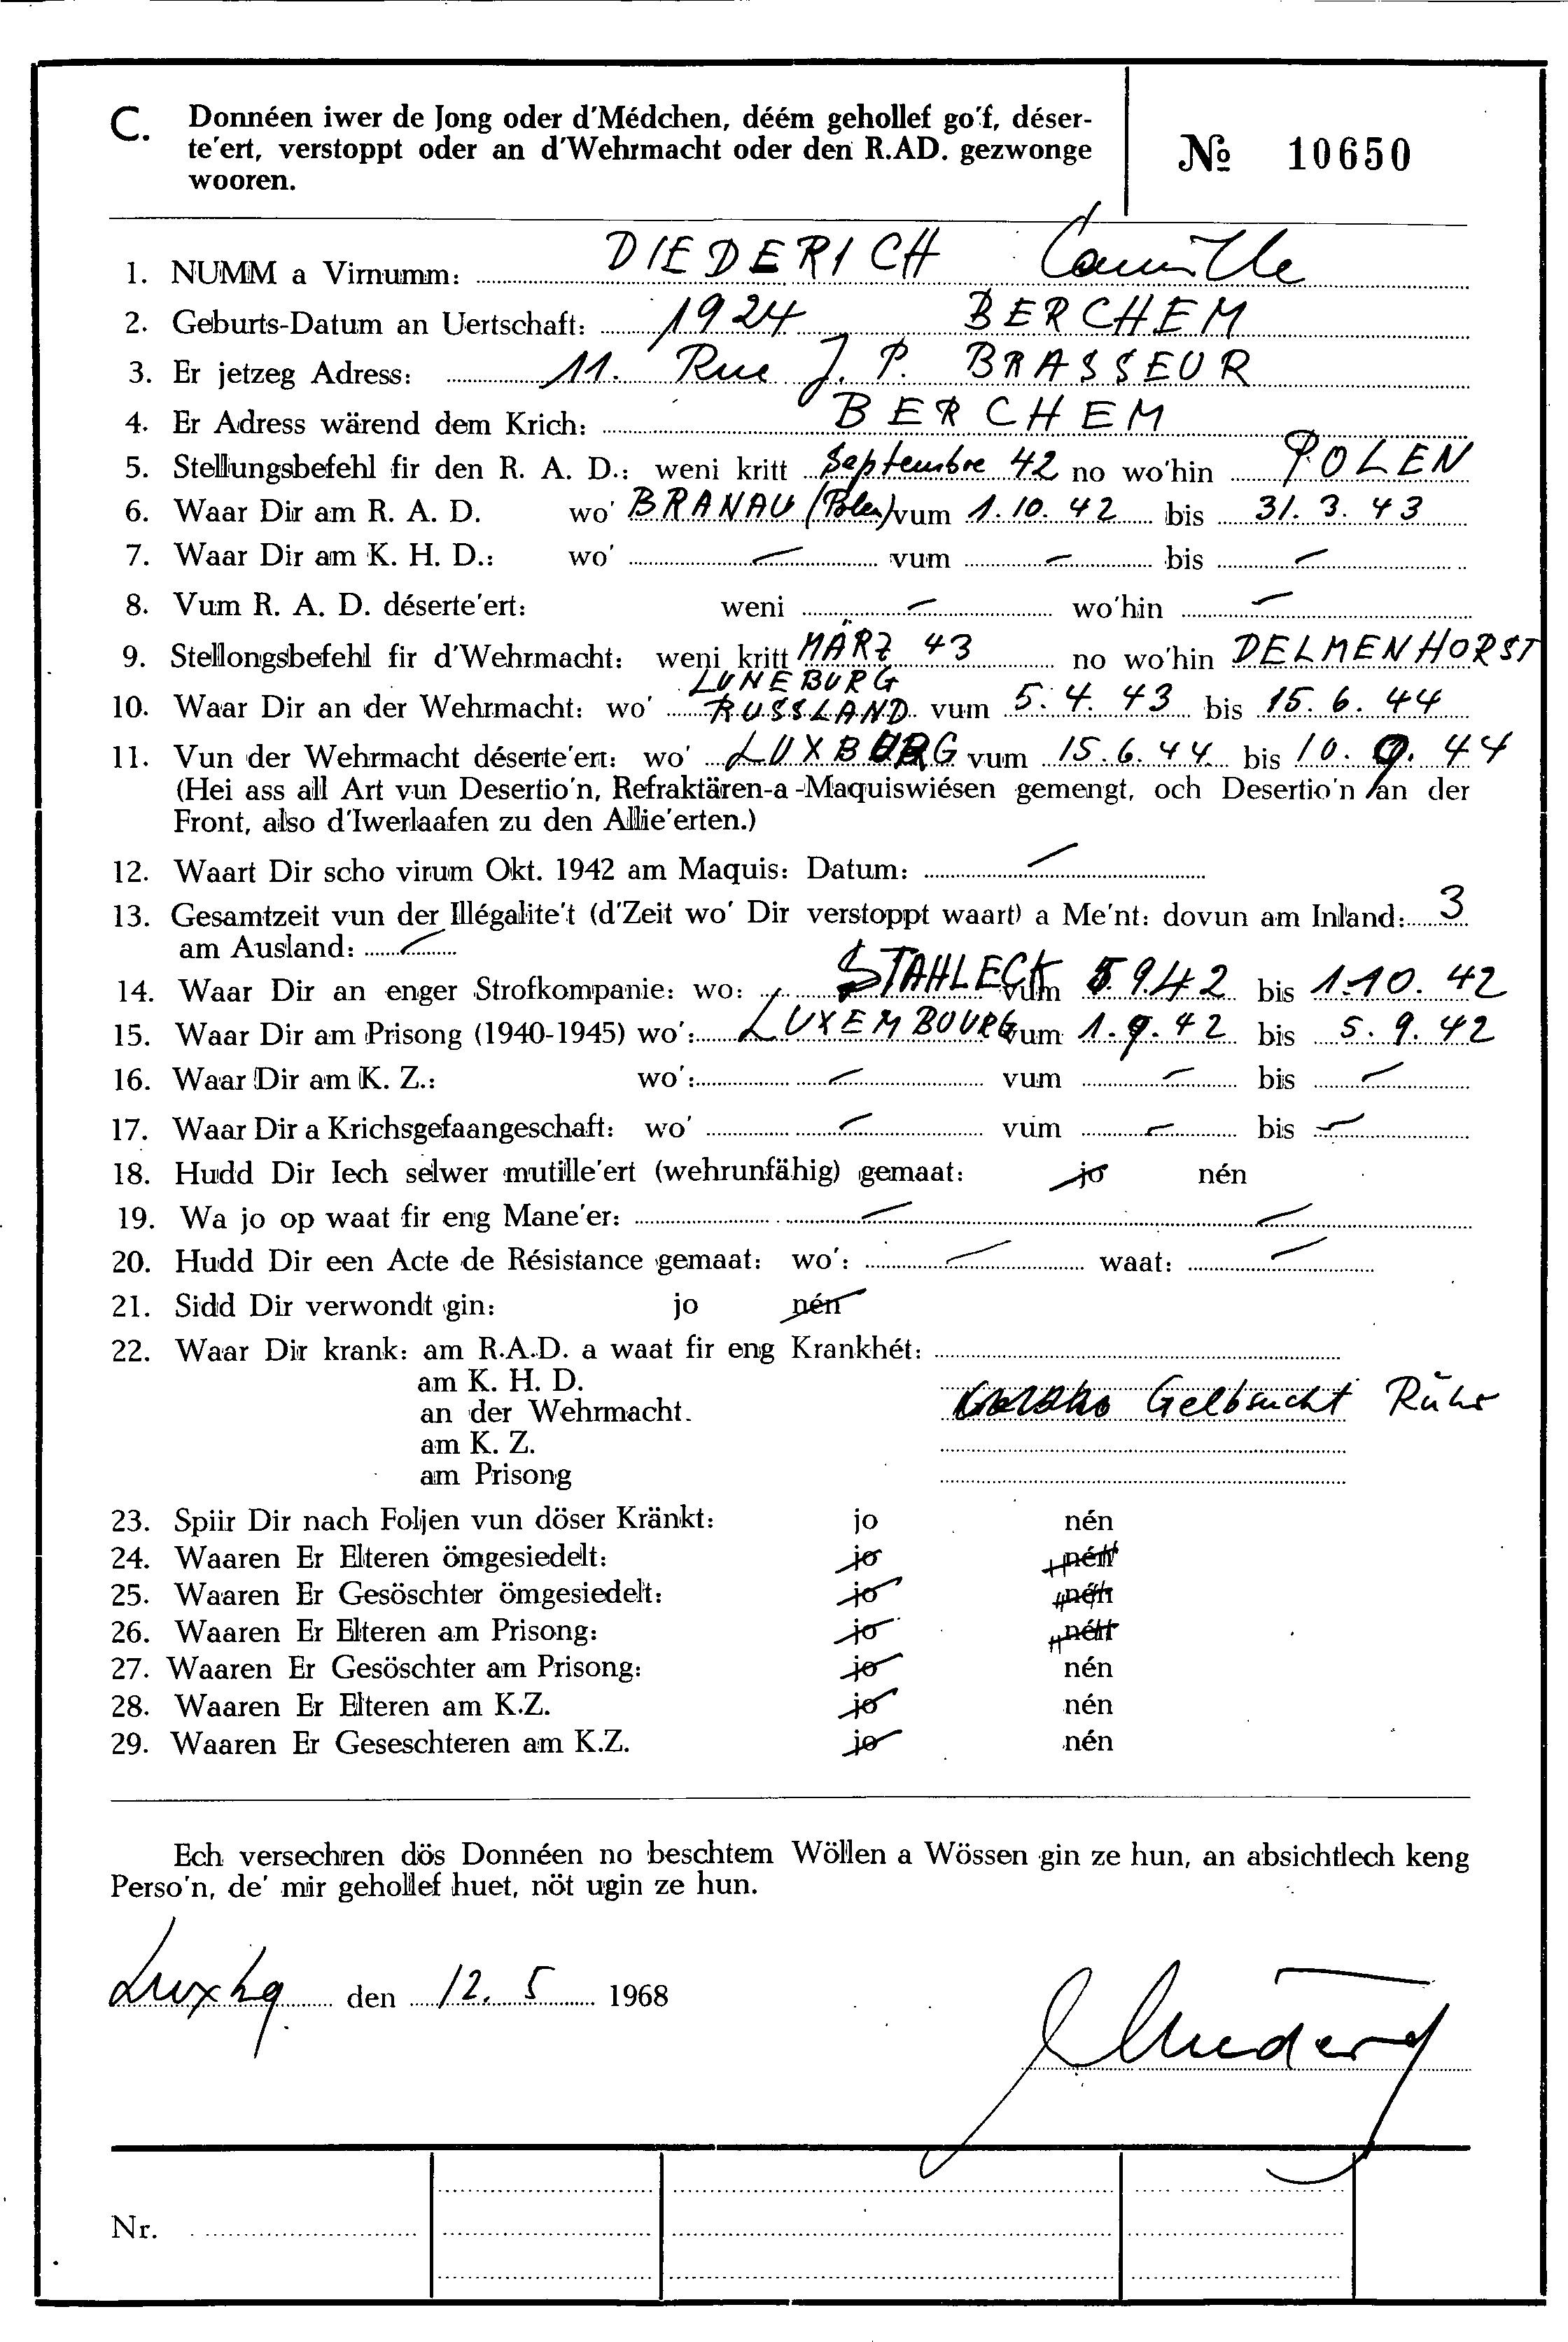 C. Donnéen iwer de Jong oder d'Médchen, déém gehollef go'f, déser-
te'ert, verstoppt oder an d'Wehrmacht oder den R.AD. gezwonge
wooren.
№ 10650
1. NUMM a Virnumm: DIEDERICH Camille
2. Geburts-Datum an Uertschaft: 1924 BERCHEM
3. Er jetzeg Adress: 11. Rue J. P. BRASSEUR
4. Er Adress wärend dem Krich: BERCHEM
5. Stellungsbefehl fir den R. A. D.: weni kritt Septembre 42 no wo'hin POLEN
6. Waar Dir am R. A. D. wo' BRANAU (Polen) vum 1. 10. 42 bis 31. 3. 43
7. Waar Dir am K. H. D.: wo' — vum — bis —
8. Vum R. A. D. déserte'ert: weni — wo'hin —
9. Stellongsbefehl fir d'Wehrmacht: weni kritt MÄRZ 43 no wo'hin DELMENHORST
LUNEBURG
10. Waar Dir an der Wehrmacht: wo' RUSSLAND vum 5. 4. 43 bis 15. 6. 44
11. Vun der Wehrmacht déserte'ert: wo' LUXBURG vum 15. 6. 44 bis 10. 9. 44
(Hei ass all Art vun Desertio'n, Refraktären-a-Maquiswiésen gemengt, och Desertio'n an der
Front, also d'Iwerlaafen zu den Allie'erten.)
12. Waart Dir scho virum Okt. 1942 am Maquis: Datum: —
13. Gesamtzeit vun der Illégalite't (d'Zeit wo' Dir verstoppt waart) a Me'nt: dovun am Inland: 3
am Ausland: —
14. Waar Dir an enger Strofkompanie: wo: STAHLECK vum 5. 9. 42 bis 1. 10. 42
15. Waar Dir am Prisong (1940-1945) wo': LUXEMBOURG vum 1. 9. 42 bis 5. 9. 42
16. Waar Dir am K. Z.: wo': — vum — bis —
17. Waar Dir a Krichsgefaangeschaft: wo' — vum — bis —
18. Hudd Dir Iech selwer mutille'ert (wehrunfähig) gemaat: jo nén
19. Wa jo op waat fir eng Mane'er: — —
20. Hudd Dir een Acte de Résistance gemaat: wo': — waat: —
21. Sidd Dir verwondt gin: jo nén
22. Waar Dir krank: am R.A.D. a waat fir eng Krankhét:
am K. H. D.
an der Wehrmacht. Gelbsucht Ruhr
am K. Z.
am Prisong
23. Spiir Dir nach Foljen vun döser Kränkt: jo nén
24. Waaren Er Elteren ömgesiedelt: jo nén
25. Waaren Er Gesöschter ömgesiedelt: jo nén
26. Waaren Er Elteren am Prisong: jo nén
27. Waaren Er Gesöschter am Prisong: jo nén
28. Waaren Er Elteren am K.Z. jo nén
29. Waaren Er Geseschteren am K.Z. jo nén
Ech versechren dös Donnéen no beschtem Wöllen a Wössen gin ze hun, an absichtlech keng
Perso'n, de' mir gehollef huet, nöt ugin ze hun.
Luxbg den 12. 5 1968
Nr.